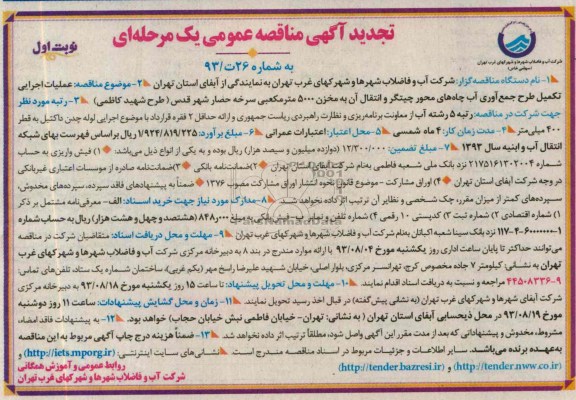 تجدید آگهی مناقصه عمومی یک مرحله‌ای
نوبت اول
به شماره ۲۶ت/۹۳
شرکت آب و فاضلاب شهرها و شهرکهای غرب تهران
(سهامی خاص)
۱- نام دستگاه مناقصه گزار: شرکت آب و فاضلاب شهرها و شهرکهای غرب تهران به نمایندگی از آبفای استان تهران ۲- موضوع مناقصه: عملیات اجرایی
تکمیل طرح جمع‌آوری آب چاه‌های محور چیتگر و انتقال آن به مخزن ۵۰۰۰ مترمکعبی سرخه حصار شهر قدس (طرح شهید کاظمی) ۳- رتبه مورد نظر
جهت شرکت در مناقصه: رتبه ۵ رشته آب از معاونت برنامه‌ریزی و نظارت راهبردی ریاست جمهوری و ارائه حداقل ۲ فقره قرارداد با موضوع اجرایی لوله چدن داکتیل به قطر
۴۰۰ میلی‌متر ۴- مدت زمان کار: ۴ ماه شمسی ۵- محل اعتبار: اعتبارات عمرانی ۶- مبلغ برآورد: ۷/۹۲۴/۸۱۹/۲۲۵ ریال براساس فهرست بهای شبکه
انتقال آب و ابنیه سال ۱۳۹۳ ۷- مبلغ تضمین: ۱۲/۳۰۰/۰۰۰ (دوازده میلیون و سیصد هزار) ریال بوده و به یکی از انواع ذیل می‌باشد: ۱) فیش واریزی به حساب
شماره ۲۱۷۵۱۶۱۳۰۲۰۰۴ نزد بانک ملی شعبه فاطمی به‌نام شرکت آبفای استان تهران ۲) ضمانتنامه بانکی ۳) ضمانتنامه صادره از موسسات اعتباری غیربانکی
در وجه شرکت آبفای استان تهران ۴) اوراق مشارکت - موضوع قانون نحوه انتشار اوراق مشارکت مصوب ۱۳۷۶ ضمناً به پیشنهادهای فاقد سپرده، سپرده‌های مخدوش،
سپرده‌های کمتر از میزان مقرر، چک شخصی و نظایر آن ترتیب اثر داده نخواهد شد. ۸- مدارک مورد نیاز جهت خرید اسناد: الف- معرفی‌نامه مشتمل بر ذکر
۱) شماره اقتصادی ۲) شماره ثبت ۳) کدپستی ۱۰ رقمی ۴) شماره تلفن و نمابر ب- فیش بانکی به مبلغ ۸۴۸/۰۰۰ (هشتصد و چهل و هشت هزار) ریال به حساب شماره
۱۱۷-۴-۶۰۰۰۰۰۰-۱ نزد بانک سینا شعبه اکباتان به‌نام شرکت آب و فاضلاب شهرها و شهرکهای غرب تهران ۹- مهلت و محل دریافت اسناد: متقاضیان شرکت در مناقصه
می‌توانند حداکثر تا پایان ساعت اداری روز یکشنبه مورخ ۹۳/۰۸/۰۴ با ارائه موارد مندرج در بند ۸ به دبیرخانه مرکزی شرکت آب و فاضلاب شهرها و شهرکهای غرب
تهران به نشانی: کیلومتر ۷ جاده مخصوص کرج، تهرانسر مرکزی، بلوار اصلی، خیابان شهید علیرضا راسخ مهر (یکم غربی)، ساختمان شماره یک ستاد، تلفن‌های تماس:
۴۴۵۰۸۳۳۶-۹ مراجعه و نسبت به دریافت اسناد اقدام نمایند. ۱۰- مهلت و محل تحویل پیشنهاد: تا ساعت ۱۵ روز یکشنبه مورخ ۹۳/۰۸/۱۸ به دبیرخانه مرکزی
شرکت آبفای شهرها و شهرکهای غرب تهران (به نشانی پیش‌گفته) در قبال اخذ رسید تحویل نمایند. ۱۱- زمان و محل گشایش پیشنهادات: ساعت ۱۱ روز دوشنبه
مورخ ۹۳/۰۸/۱۹ در محل ذیحسابی آبفای استان تهران (به نشانی: تهران- خیابان فاطمی نبش خیابان حجاب) خواهد بود. ۱۲- به پیشنهادات فاقد امضاء،
مشروط، مخدوش و پیشنهاداتی که بعد از مدت مقرر این آگهی واصل شود، مطلقاً ترتیب اثر داده نخواهد شد. ۱۳- ضمناً هزینه درج چاپ آگهی مربوط به این مناقصه
به‌عهده برنده می‌باشد. سایر اطلاعات و جزئیات مربوط در اسناد مناقصه مندرج است. نشانی‌های سایت اینترنتی: (http://iets.mporg.ir) و
(http://tender.nww.co.ir) و (http://tender.bazresi.ir)
روابط عمومی و آموزش همگانی
شرکت آب و فاضلاب شهرها و شهرکهای غرب تهران